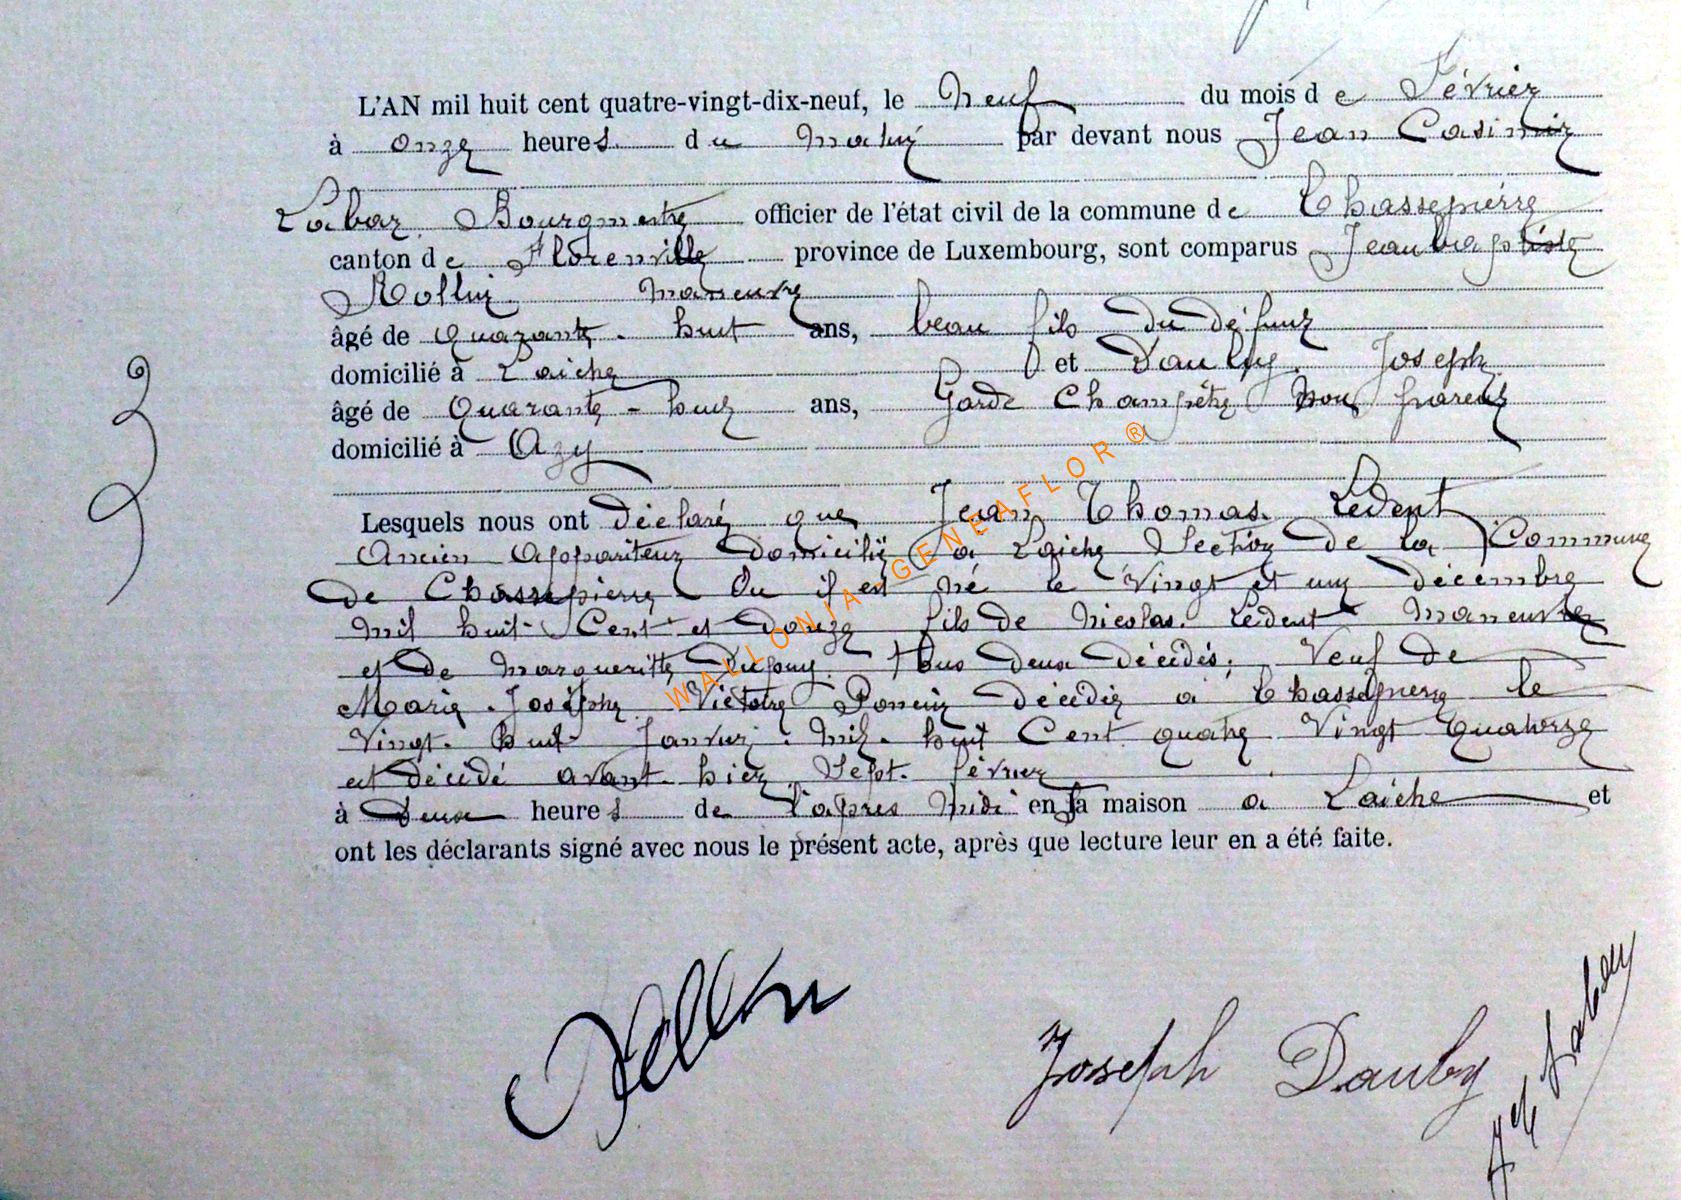 L'AN mil huit cent quatre-vingt-dix-neuf, le Neuf du mois de Février
à onze heures du matin par devant nous Jean Casimir
Labar Bourgmestre officier de l'état civil de la commune de Chassepierre
canton de Florenville province de Luxembourg, sont comparus Jean bapstiste
Rollin manœuvre
âgé de quarante-huit ans, beau fils du défunt
domicilié à Laiche et Dauby Joseph
âgé de quarante-huit ans, Garde Champêtre non parent
domicilié à Azy
Lesquels nous ont déclaré que Jean Thomas Ledent
Ancien Appariteur domicilié à Laiche Section de la Commune
de Chassepierre Ou il est né le Vingt et un décembre
mil huit Cent et douze fils de Nicolas Ledent manœuvre
et de Margueritte Tous deux décédés, Veuf de
Marie Josephe Victoire Poncin décédée à Chassepierre le
Vingt huit Janvier Mil huit Cent quatre Vingt Quatorze
est décédé avant hier Sept février
à Deux heures de l'après Midi en sa maison à Laiche et
ont les déclarants signé avec nous le présent acte, après que lecture leur en a été faite.
3
WALLONIA-GENEAFLOR ®
Rollin
Joseph Dauby
Labar